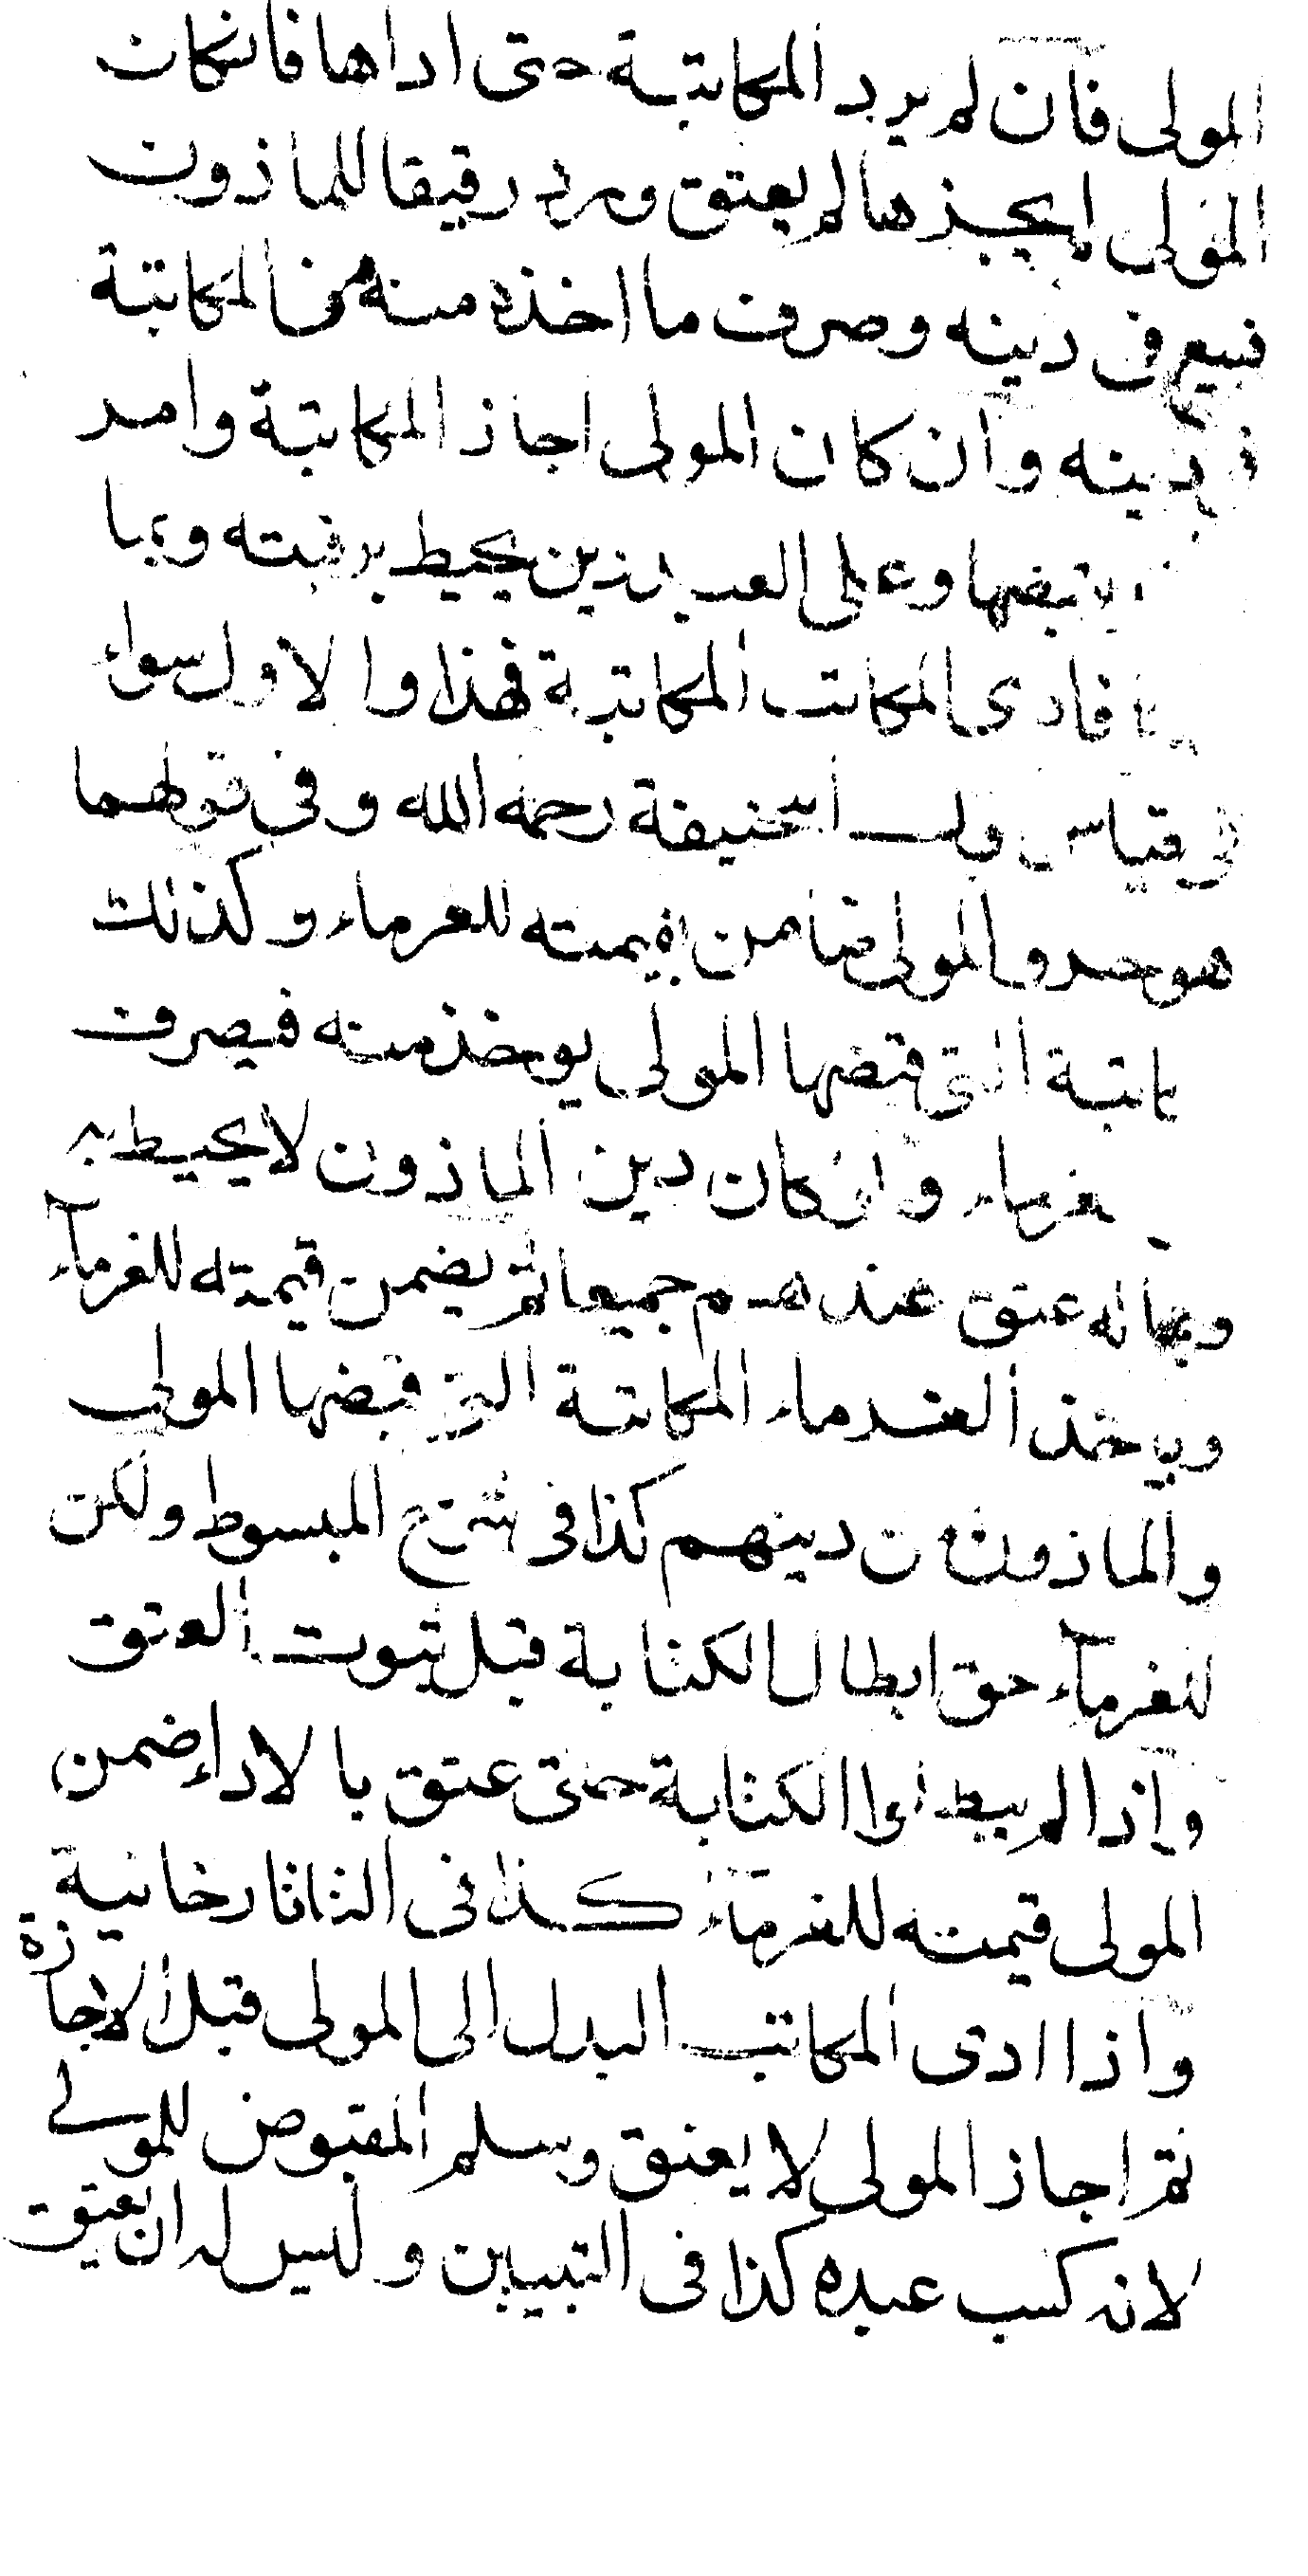 المولى فان لم يرد المكاتبة حتى اداها فانكان
المولى لم يجزها لم يعتق ورد رقيقا للماذون
فبيع فى دينه وصرف ما اخذه منه من المكاتبة
فى دينه وان كان المولى اجاز المكاتبة وامر
بقبضها وعلى العبد دين يحيط برقبته وبما
فادى المكاتب المكاتبة فهذا والاول سواء
فى قياس قول ابيحنيفة رحمه الله وفى قولهما
هو حر والمولى ضامن قيمته للغرماء وكذلك
المكاتبة التى قبضها المولى يوخذ منه فيصرف
للغرماء وان كان دين الماذون لا يحيط به
وبماله عتق عندهم جميعا ثم يضمن قيمته للغرماء
وياخذ الغرماء المكاتبة التى قبضها المولى
والماذون من دينهم كذا فى شرح المبسوط ولكن
للغرماء حق ابطال الكتابة قبل ثبوت العتق
واذا لم يبطلوا الكتابة حتى عتق بالاداء ضمن
المولى قيمته للغرماء كذا فى التاتارخانية
واذا ادى المكاتب البدل الى المولى قبل الاجازة
ثم اجاز المولى لا يعتق وسلم المقبوض للمولى
لانه كسب عبده كذا فى التبيين وليس له ان يعتق